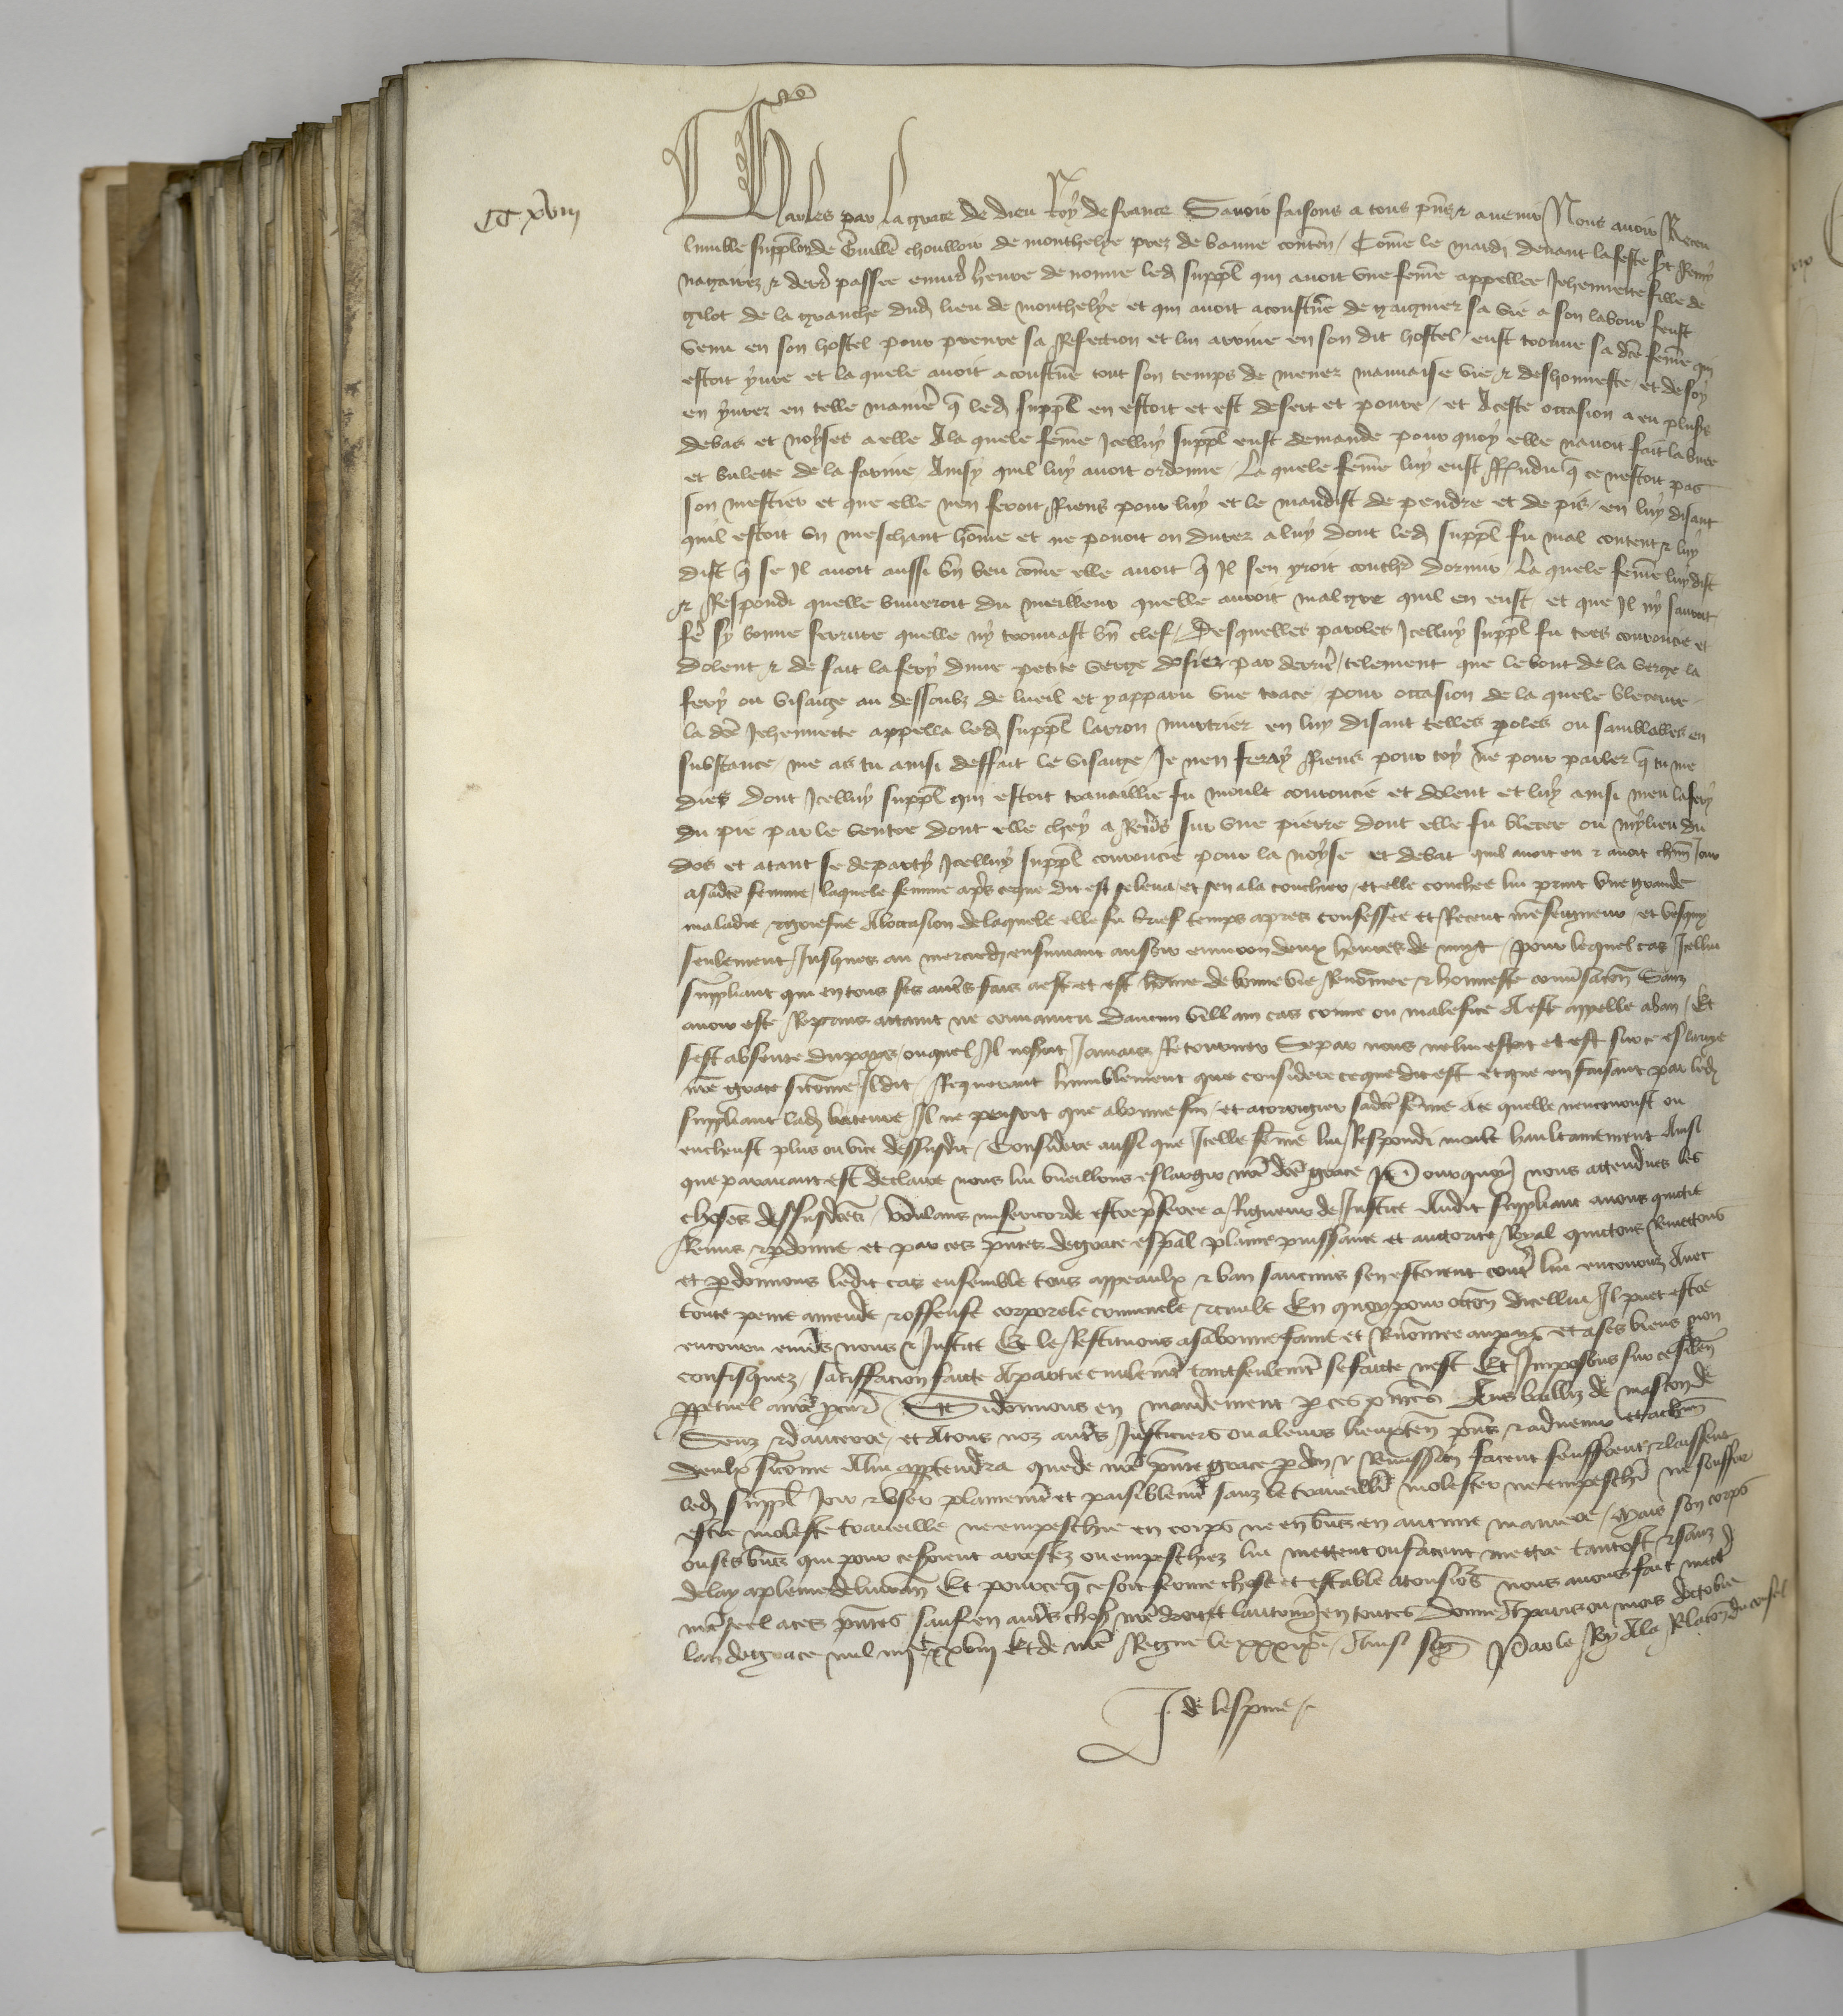 CC xviii
Charles par la grace de dieu Roy de france Savoir faisons a tous pñs & avenir Nous avoir Receu
lumble supplon de Guille chonlloir de monthelye prez de baune conten / Come le mardi devant la feste st Remy
nagaires & derr passee enuiro leure de nonne led suppl qui avoit vne feme appellee Jehennette fille de
gilot de la granche dud lieu de monthelye et qui avoit acoustue de gaigner sa vie a son labour feust
venu en son hostel pour prenre sa Refection et lui arrive en son dit hostel / eust trouve sa dce feme qui
estoit yvre et la quele avoit acoustue tout son temps de mener mauvaise vie & deshonneste / et de soy
en yvrer en telle manie q led suppl en estoit et est desert et povre / et Aceste occasion a eu plus
debas et noyses a elle Ala quele feme Icelluy suppl eust demande pour quoy elle navoit fait la buee
et bulette de la farine Ainsy quil luy avoit ordonne / La quele feme luy eust Rndu q ce nestoit pas
son mestier et que elle nen feroit Riens pour luy et le maudist de pendre et de pis / en luy disant
quil estoit un meschant hoe et ne povoit on durer a luy dont led suppl fu mal content & luy
dist q se Il avoit aussi bn beu come elle avoit q Il sen yroit couch dormir / La quele feme luy dist
& Respondi quelle buveroit du meilleur quelle auroit malgre quil en eust / et que Il ny sauroit
fe sy bonne serrure quelle ny trouvast bn clef / Desquelles paroles Icelluy suppl fu tres courroucie et
dolent & de fait la fery dune petite verge dosier par derrie / telement que le bout de la verge la
fery ou visaige au dessoubz de lueil et y apparu une trace / pour occasion de la quele bleceure
la dce Jehennette appella led suppl larron murtrier en luy disant telles poles ou samblables en
substance / me as tu ainsi deffait le visaige / Je nen feray Riens pour toy ne pour parler q tu me
dies dont Icelluy suppl qui estoit travaillie fu moult courroucie et dolent et luy ainsi meu la fery
du pie par le ventre dont elle chey a Revs sur une pierre dont elle fu blecee ou mylieu du
dos et atant se departy Icelluy suppl courroucie pour la noyse et debat quil avoit eu & avoit chun Jour
a sadce femme / laquele femme aps ce que dit est se leva / et sen ala couchier / et elle couchee lui print une grande
maladie & griefve Aloccasion de laquele elle fu brief temps apres confessee et Receut mreseigneur / et vesqui
seulement / Jusques au mercredi ensuivant au soir environ deux heures de nuyt / pour lequel cas Icellui
suppliant qui en tous ses aues fais a este et est home de bonne vie Renomee & honneste conversacon Sanz
avoir este Reprins attaint ne convaincu daucun villain cas crime ou malefice A este appelle a ban / Et
sest absente du pays / ouquel Il noseroit Jamais Retourner Se par nous ne lui estoit et est sur ce eslargie
nre grace sicomme Il dit / Requerant humblement que considere ce que dit est et que en faisant par led
suppliant lad bateure Il ne pensoit que a bonne fin / et a corrigier sadce femme Ace quelle nencourust ou
encheust plus ou vice dessusdit / Considere aussi que Icelle feme lui Respondi moult haultainement Ainsi
que paravant est declaire nous lui vueillons eslargir nre dce grace Pourquoy nous attendues les
choses dessusdces / voulans misericorde estre preferee a Rigueur de Justice Audit suppliant avons quictie
Remis & pdonne et par ces pntes de grace espal plaine puissance et auctorite Royal quictons Remettons
et pdonnons ledit cas ensemble tous appeaulx & ban saucuns sen estoient contre lui encouruz Avec
toute peine amende & offense corporele criminele & civile En quoy pour occon dicellui / Il puet estre
encouru envers nous & Justice Et le Restituons a sa bonne fame et Renomee au pays et a ses biens non
confisquez / satiffacion faicte Apartie civilemt tantseulemt se faicte nest Et Imposons sur ce silen
ppetuel a nre pcur / Si donnons en mandement p ces pntes Aus bailliz de mascon de
Senz & daucerre / et Atous noz autres Justiciers ou a leurs lieuxten pns & advenir et achun
deulx sicome Alui apptendra que de nre pnte grace pdon & Remission facent seuffrent & laissent
led suppl Joir & user plainemt et paisiblemt sanz le travaillier molester ne empeschier ne souffrir
estre moleste travaille ne empeschie en corps ne en biens en aucune maniere / Mais son corps
ou ses biens qui pour ce seroient arrestez ou empeschiez lui mettent ou facent mettre tantost & sanz
delay a pleine delivran Et pource q ce soit ferme chose et estable a tousjors nous avons fait mectre
nre seel a ces pntes sauf en autres choses nre droit et lautruy en toutes Donne A paris ou mois doctobre
lan de grace mil iiijc xviii Et de nre Regne le xxxixe / Ainsi sign Par le Roy Ala Relacon du consel
J. de lespine